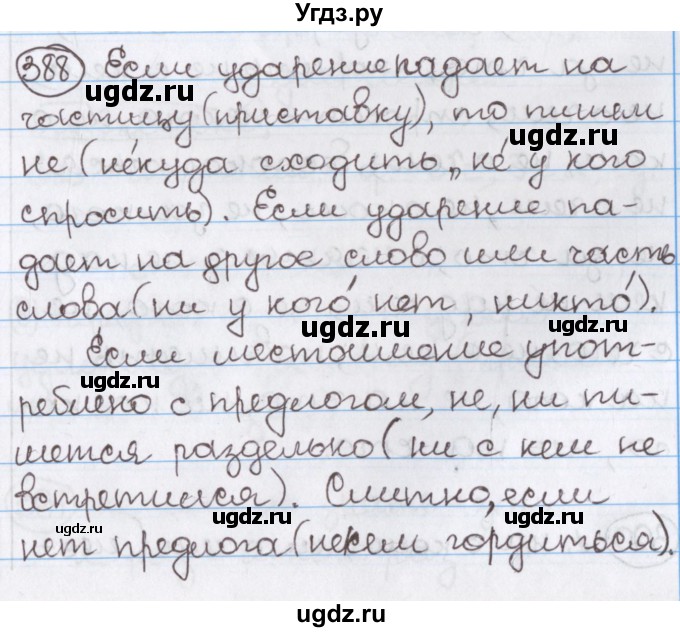 Угдз.ру
388 Если ударение падает на
ugdz.ru
частицу (приставку), то пишем
ugdz.ru
не (не́куда сходить, не́ у кого
спросить). Если ударение па-
дает на другое слово или часть
слова (ни у кого́ нет, никто́).
ugdz.ru
ugdz.ru
Если местоимение упот-
ugdz.ru
реблено с предлогом, не, ни пи-
шется раздельно (ни с кем не
встретился). Слитно, если
ugdz.ru
ugdz.ru
ugdz.ru
нет предлога (некем гордиться).
ugdz.ru
ugdz.ru